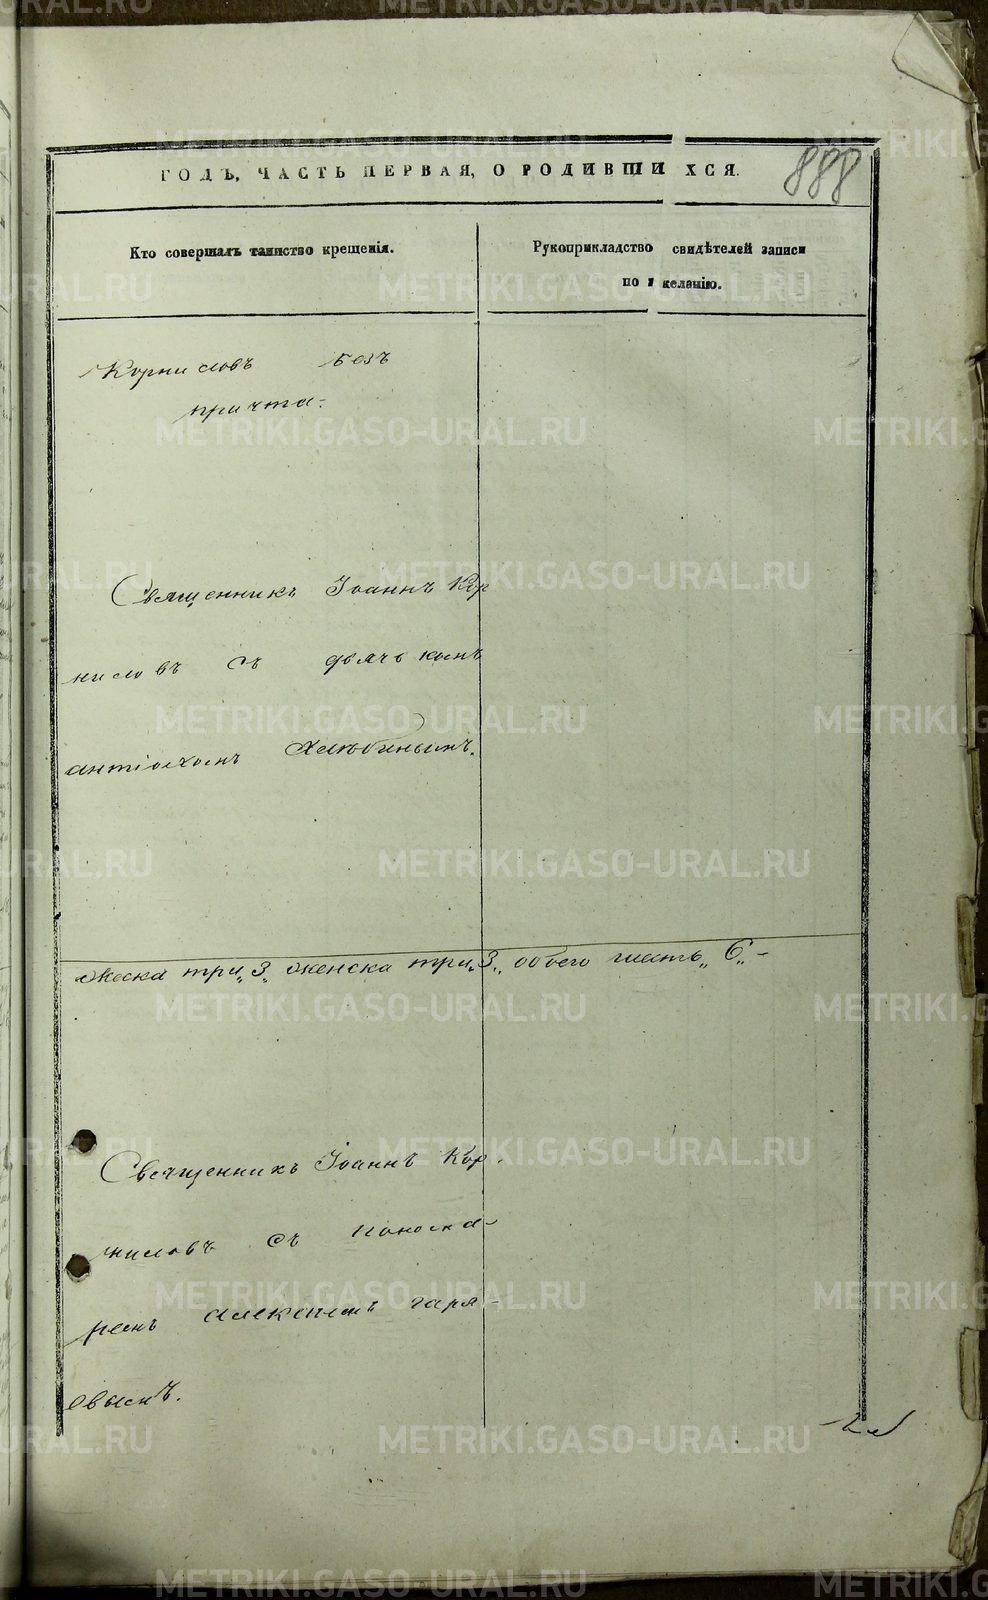 METRIKI.GASO-URAL.RU
ГОДЪ, ЧАСТЬ ПЕРВАЯ, О РОДИВШИХСЯ.
888
Кто совершалъ таинство крещенія.
Рукоприкладство свидѣтелей записи
по желанію.
Корниловъ безъ
причта.
Священникъ Іоаннъ Кор
ниловъ съ дьячькомъ
антіохомъ Хлѣбинымъ.
Мжеска три „3„ женска три „3„ обоего шесть „6„ -
Священникъ Іоаннъ Кор.
ниловъ съ понома-
ремъ алексѣемъ гаря-
евымъ.